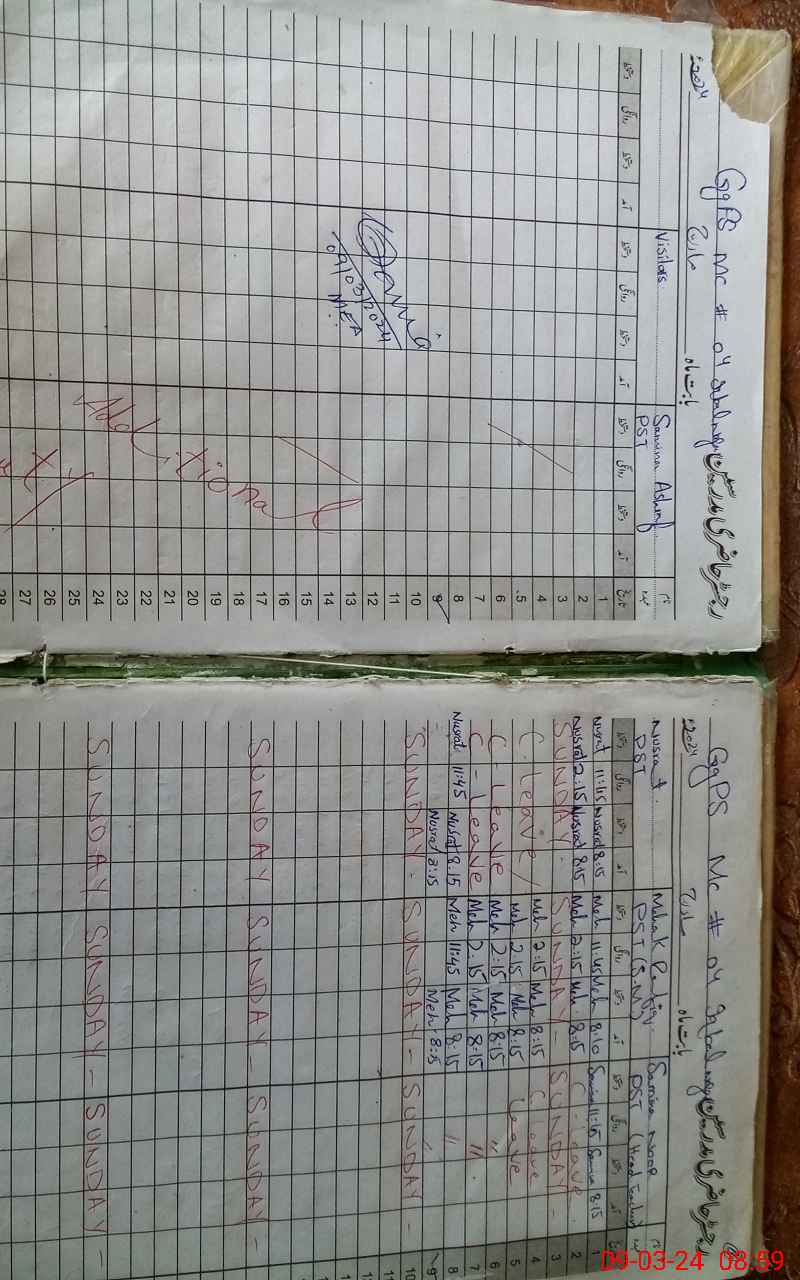 GgPS Mc # 04
2024
مارچ
بابت ماہ
Nusrat.
PST
Mehak
PST (S.M)
Samina Noor
PST (Head Teacher)
1 Nusrat 11:45 Nusrat 8:15 Meh 11:45 Meh 8:10 Samina 11:45 Samina 8:15
2 Nusrat 2:15 Nusrat 8:15 Meh 2:15 Meh 8:15 C-Leave
3 SUNDAY. SUNDAY- SUNDAY-
4 C.Leave Meh 2:15 Meh 8:15 C Leave
5 Meh 2:15 Meh 8:15 Leave
6 C-Leave Meh 2:15 Meh 8:15 "
7 C-Leave Meh 2:15 Meh 8:15 "
8 Nusrat 11:45 Nusrat 8.15 Meh 11:45 Meh 8:15 "
9 Nusrat 8:15 Meh 8:15 "
10 SUNDAY. SUNDAY- SUNDAY-
SUNDAY SUNDAY- SUNDAY-
SUNDAY SUNDAY- SUNDAY-
GgPS Mc # 04
2024
مارچ
بابت ماہ
Visitors.
Samina Ashraf
PST
1
2
3
4
5
6
7
8
9
10
11
12
13
14
15
16
17
18
19
20
21
22
23
24
25
26
27
28
09/03/2024
MEA
Additional
09-03-24 08:59